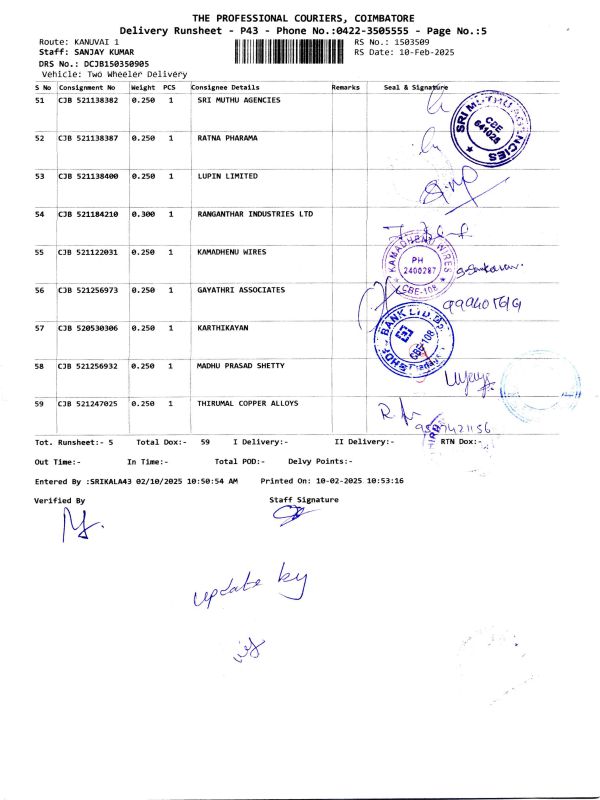 THE PROFESSIONAL COURIERS, COIMBATORE
Delivery Runsheet - P43 - Phone No.:0422-3505555 - Page No.:5
Route: KANUVAI 1
RS No.: 1503509
Staff: SANJAY KUMAR
RS Date: 10-Feb-2025
DRS No.: DCJB150350905
Vehicle: Two Wheeler Delivery
S No Consignment No Weight PCS Consignee Details Remarks Seal & Signature
51 CJB 521138382 0.250 1 SRI MUTHU AGENCIES
SRI MUTHU AGENCIES
CBE
641028
52 CJB 521138387 0.250 1 RATNA PHARAMA
53 CJB 521138400 0.250 1 LUPIN LIMITED
54 CJB 521184210 0.300 1 RANGANTHAR INDUSTRIES LTD
55 CJB 521122031 0.250 1 KAMADHENU WIRES
KAMADHENU WIRES
PH
2400287
CBE-108
56 CJB 521256973 0.250 1 GAYATHRI ASSOCIATES
57 CJB 520530306 0.250 1 KARTHIKAYAN
BANK LTD
CBE-108
58 CJB 521256932 0.250 1 MADHU PRASAD SHETTY
59 CJB 521247025 0.250 1 THIRUMAL COPPER ALLOYS
Tot. Runsheet:- 5 Total Dox:- 59 I Delivery:- II Delivery:- RTN Dox:-
Out Time:- In Time:- Total POD:- Delvy Points:-
Entered By :SRIKALA43 02/10/2025 10:50:54 AM Printed On: 10-02-2025 10:53:16
Verified By Staff Signature
update by